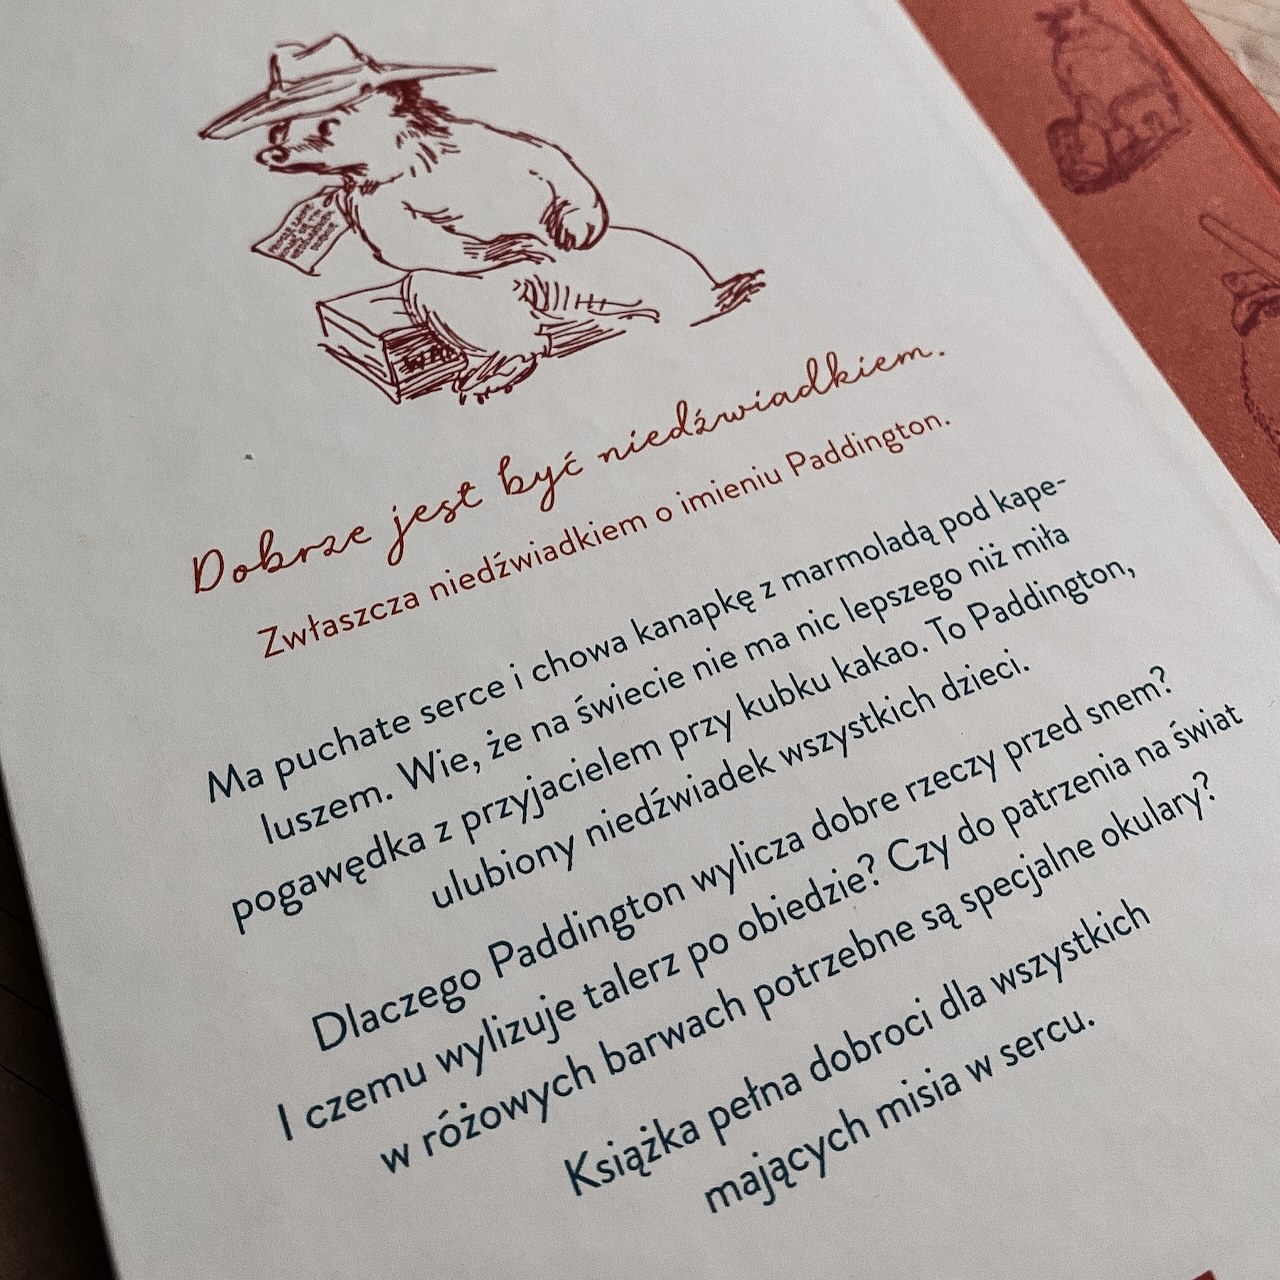 Dobrze jest być niedźwiadkiem.
Zwłaszcza niedźwiadkiem o imieniu Paddington.
Ma puchate serce i chowa kanapkę z marmoladą pod kape-
luszem. Wie, że na świecie nie ma nic lepszego niż miła
pogawędka z przyjacielem przy kubku kakao. To Paddington,
ulubiony niedźwiadek wszystkich dzieci.
Dlaczego Paddington wylicza dobre rzeczy przed snem?
I czemu wylizuje talerz po obiedzie? Czy do patrzenia na świat
w różowych barwach potrzebne są specjalne okulary?
Książka pełna dobroci dla wszystkich
mających misia w sercu.